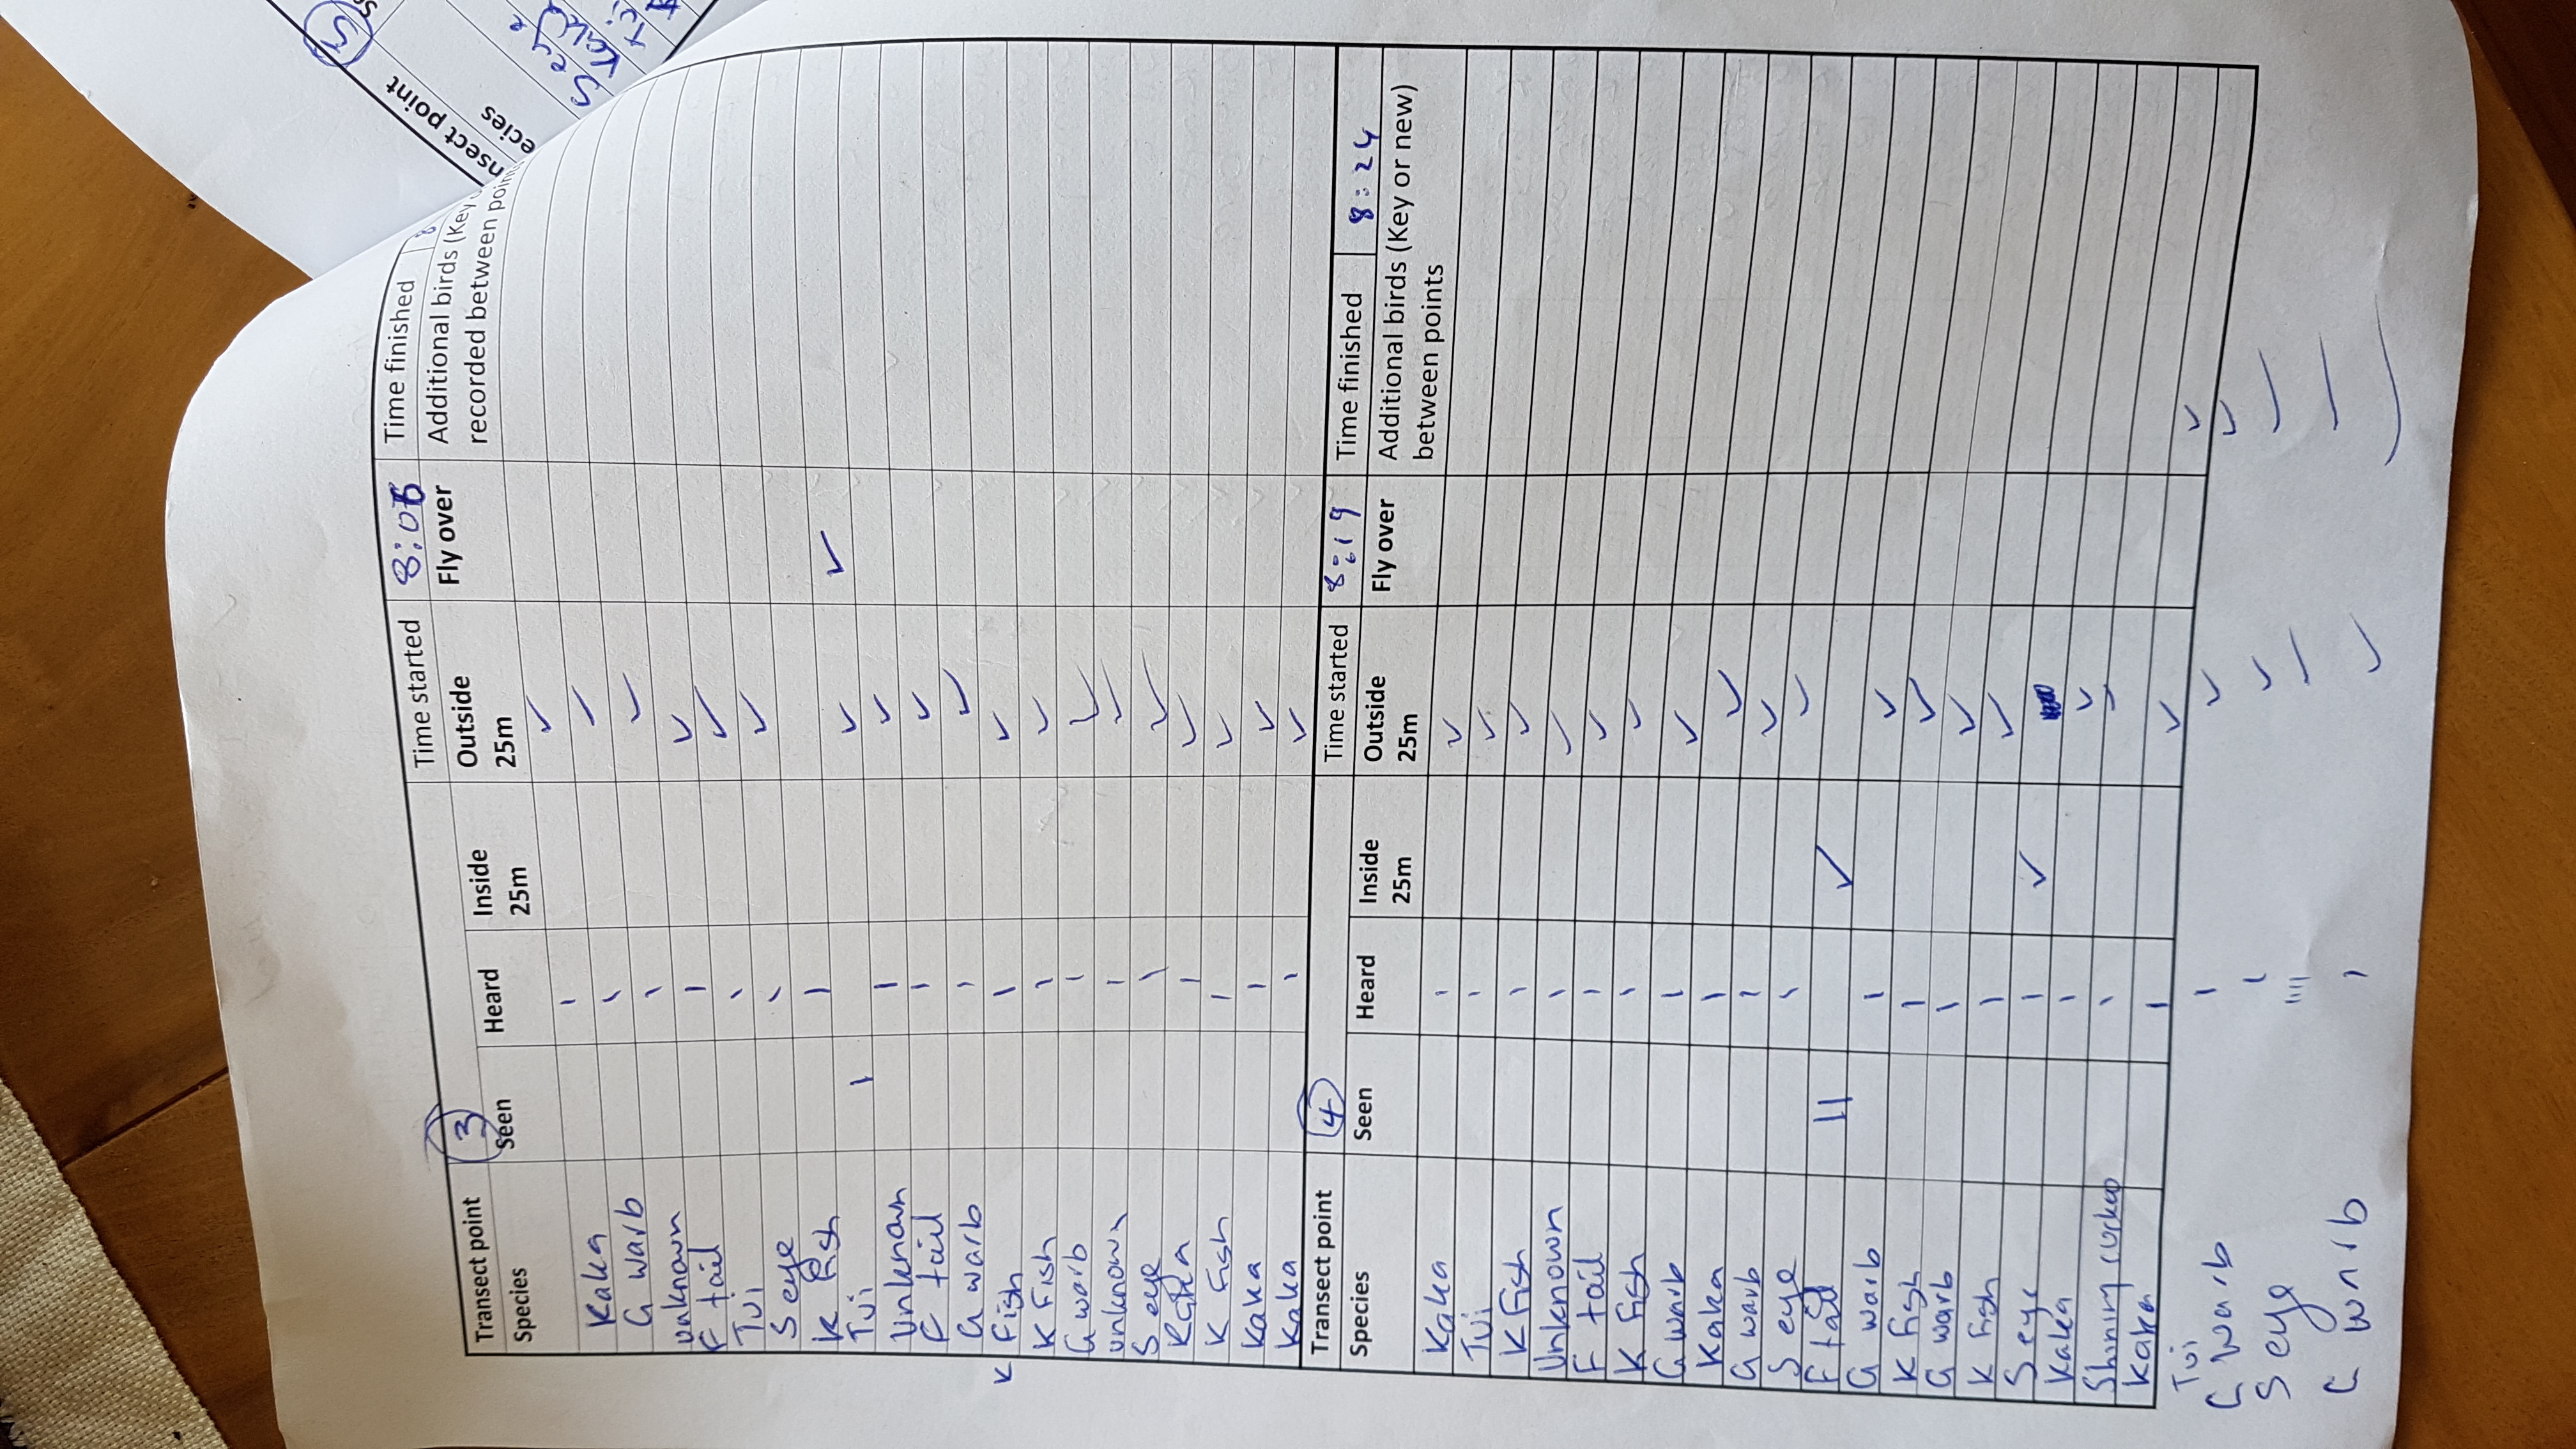 Transect point 3 Time started 8:06 Time finished 8
Species Seen Heard Inside 25m Outside 25m Fly over Additional birds (Key recorded between point
Kaka ı ✓
G warb ı ✓
unknown ı ✓
F tail ı ✓
Tui ı ✓
S eye ı ✓
K fish ı
Tui ı ✓ ✓
Unknown ı ✓
F tail ı ✓
G warb ı ✓
K Fish ı ✓
K Fish ı ✓
G warb ı ✓
unknown ı ✓
S eye ı ✓
Kaka ı ✓
K Fish ı ✓
Kaka ı ✓
Kaka ı ✓
Transect point 4 Time started 8:19 Time finished 8:24
Species Seen Heard Inside 25m Outside 25m Fly over Additional birds (Key or new) between points
Kaka ı ✓
Tui ı ✓
K Fish ı ✓
Unknown ı ✓
F tail ı ✓
K Fish ı ✓
G warb ı ✓
Kaka ı ✓
G warb ı ✓
S eye ı ✓
F tail ıı ✓
G warb ı ✓
K Fish ı ✓
G warb ı ✓
K Fish ı ✓
S eye ı ✓
Kaka ı ✓
Shining cuckoo ı ✓
Kaka ı ✓
Tui ı ✓ ✓
G warb ı ✓ ✓
S eye ııııı ✓ ✓
G warb ı ✓ ✓
nsect point 5
ecies
S eye
Kaka
Tui